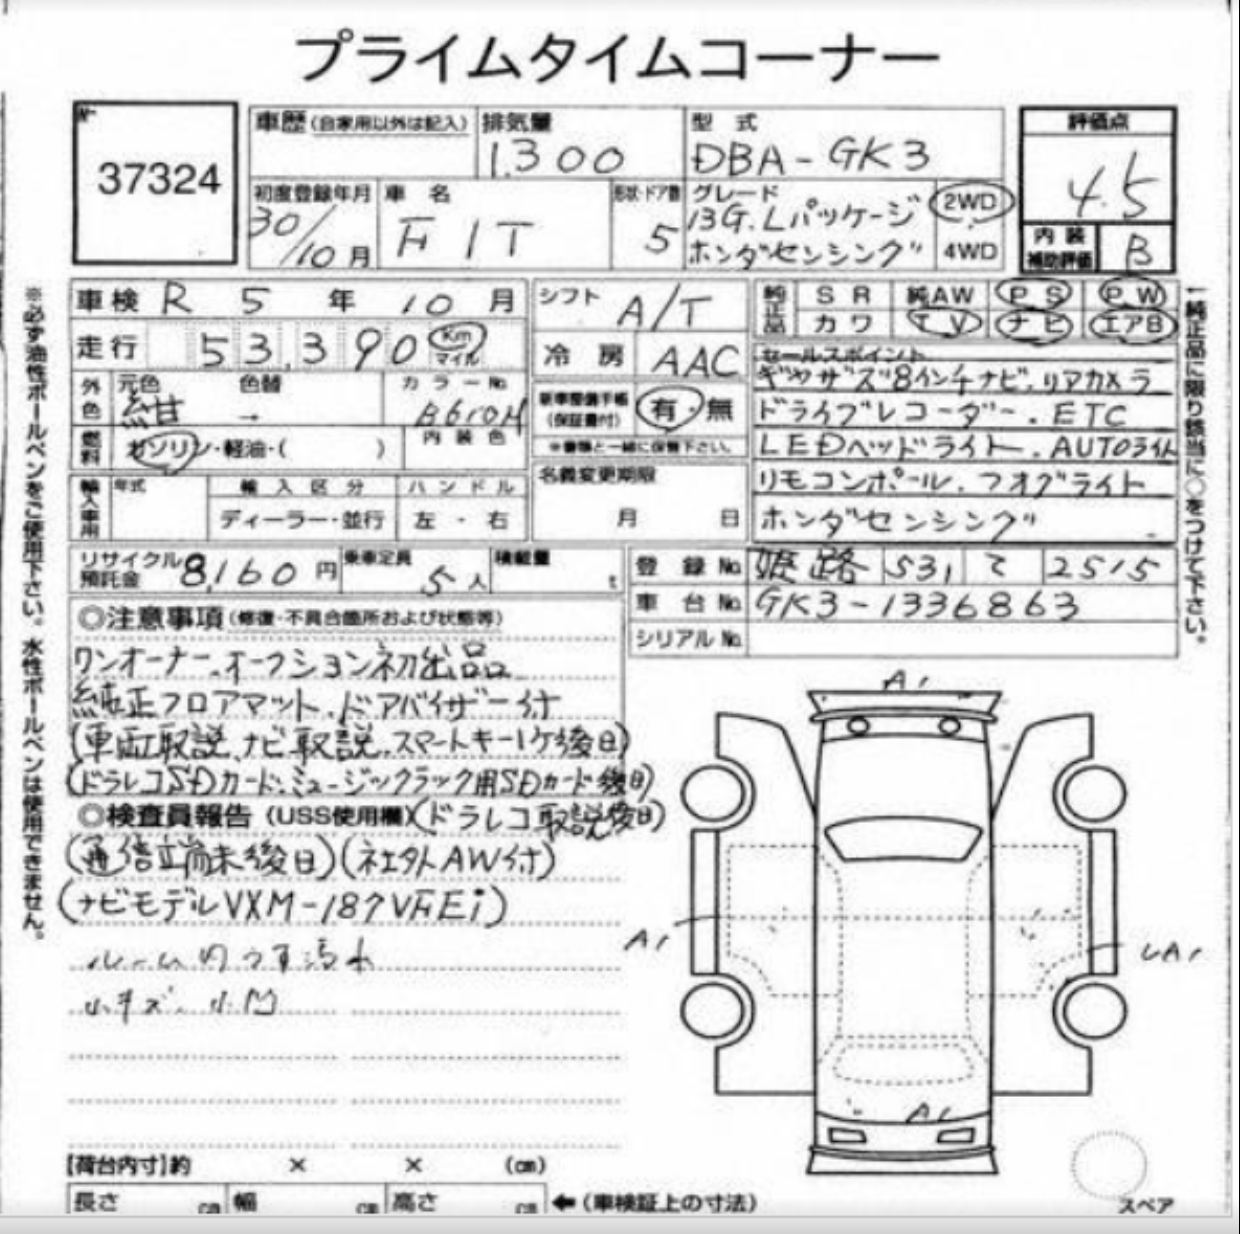 プライムタイムコーナー
No.
37324
車歴(自家用以外は記入) 排気量 型式
1.300 DBA-GK3
初度登録年月 車名 形状・ドア数 グレード
30/10月 FIT 5 13G.Lパッケージ
ホンダセンシング
2WD
4WD
評価点
4.5
内装
補助評価 B
車検 R 5 年 10 月
走行 53,390 Km
マイル
外色 元色 色替 カラーNo.
紺 → B610M
燃料 ガソリン・軽油・( ) 内装色
輸入車用 年式 輸入区分 ハンドル
ディーラー・並行 左・右
シフト A/T
冷房 AAC
新車整備手帳
(保証書付) 有・無
※書類と一緒に保管下さい。
名義変更期限
月 日
純正品 SR 純AW PS PW
カワ TV ナビ エアB
セールスポイント
ギャザズ8インチナビ.リアカメラ
ドライブレコーダー.ETC
LEDヘッドライト.AUTOライト
リモコンポール.フオグライト
ホンダセンシング
リサイクル
預託金 8,160 円 乗車定員 5人 積載量 t
登録No. 姫路 531 て 2515
車台No. GK3-1336863
シリアルNo.
◎注意事項(修復・不具合箇所および状態等)
ワンオーナー.オークション初出品
純正フロアマット.ドアバイザー付
(車両取説.ナビ取説.スマートキー1ケ後日)
(ドラレコSDカード.ミュージックラック用SDカード後日)
◎検査員報告(USS使用欄)(ドラレコ取説後日)
(通信端末後日)(社外AW付)
(ナビモデルVXM-187VFEi)
ルーム内うす汚れ
小キズ、小凹
A1
A1
UA1
A1
【荷台内寸】約 × × (cm)
長さ cm 幅 cm 高さ cm ←(車検証上の寸法)
スペア
※必ず油性ボールペンをご使用下さい。水性ボールペンは使用できません。
↑純正品に限り該当に○をつけて下さい。